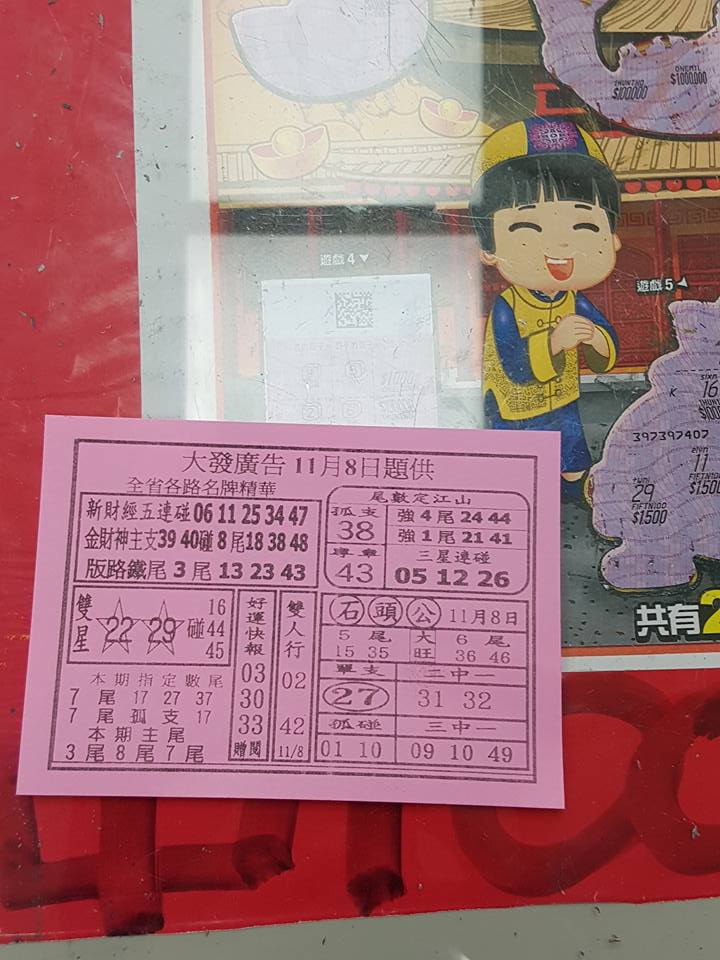 ONEMIL
$1000,000
$100,000
遊戲4▼
遊戲5◀
16
397397407
11
29
FIFTN100
$1,500
$1,500
共有2
大發廣告 11月8日題供
全省各路名牌精華
新財經五連碰 06 11 25 34 47
金財神主支 39 40碰 8尾 18 38 48
版路鐵尾 3尾 13 23 43
尾數定江山
孤支
38
強4尾 24 44
強1尾 21 41
43
三星連碰
05 12 26
雙星
22 29 碰
16
44
45
本期指定數尾
7尾 17 27 37
7尾孤支 17
本期主尾
3尾8尾7尾
好運快報
03
30
33
贈閱
雙人行
02
42
11/8
石頭公 11月8日
5尾
15 35
大旺
6尾
36 46
單支
27
二中一
31 32
孤碰
01 10
三中一
09 10 49